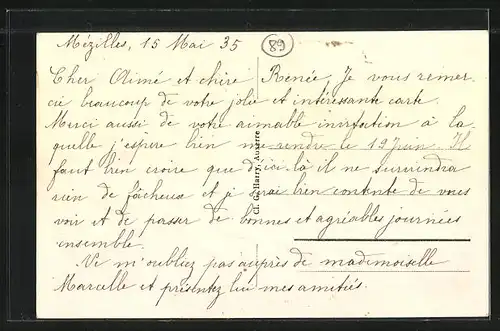 Mézilles, 15 Mai 35
89
Cher Aimé et chère Renée, Je vous remer
cie beaucoup de votre jolie et intéressante carte.
Merci aussi de votre aimable invitation à la
quelle j'espère bien me rendre le 12 Juin. Il
faut bien croire que d'ici là il ne surviendra
rien de fâcheux et je serai bien contente de vous
voir et de passer de bonnes et agréables journées
ensemble.
Ne m'oubliez pas auprès de mademoiselle
Marcelle et présentez lui mes amitiés.
Cl. G. Harry, Auxerre